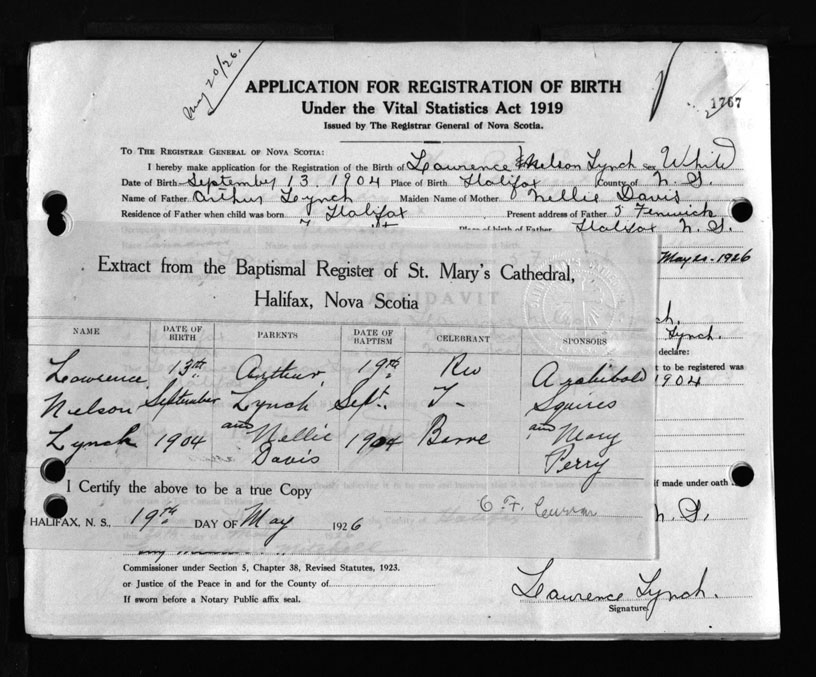 May 20/26.
APPLICATION FOR REGISTRATION OF BIRTH
Under the Vital Statistics Act 1919
Issued by The Registrar General of Nova Scotia.
1767
TO THE REGISTRAR GENERAL OF NOVA SCOTIA:
I hereby make application for the Registration of the Birth of Lawrence Nelson Lynch Sex White
Date of Birth September 13. 1904 Place of Birth Halifax County of N. S.
Name of Father Arthur Lynch Maiden Name of Mother Nellie Davis
Residence of Father when child was born Halifax Present address of Father 5 Fenwick
Place of birth of Father Halifax N. S.
May 20-1926
Extract from the Baptismal Register of St. Mary's Cathedral,
Halifax, Nova Scotia
AFFIDAVIT
ch.
Lynch.
declare:
t to be registered was
1904
NAME DATE OF BIRTH PARENTS DATE OF BAPTISM CELEBRANT SPONSORS
Lawrence 13th Arthur 19th Rev Archibald
Nielson September Lynch Sept. T- Squires
Lynch 1904 and Nellie 1904 Barre and Mary
Davis Perry
I Certify the above to be a true Copy
if made under oath
C. F. Curran
HALIFAX, N. S., 19th DAY OF May 1926
N. S.
Commissioner under Section 5, Chapter 38, Revised Statutes, 1923.
or Justice of the Peace in and for the County of
If sworn before a Notary Public affix seal.
Lawrence Lynch.
Signature